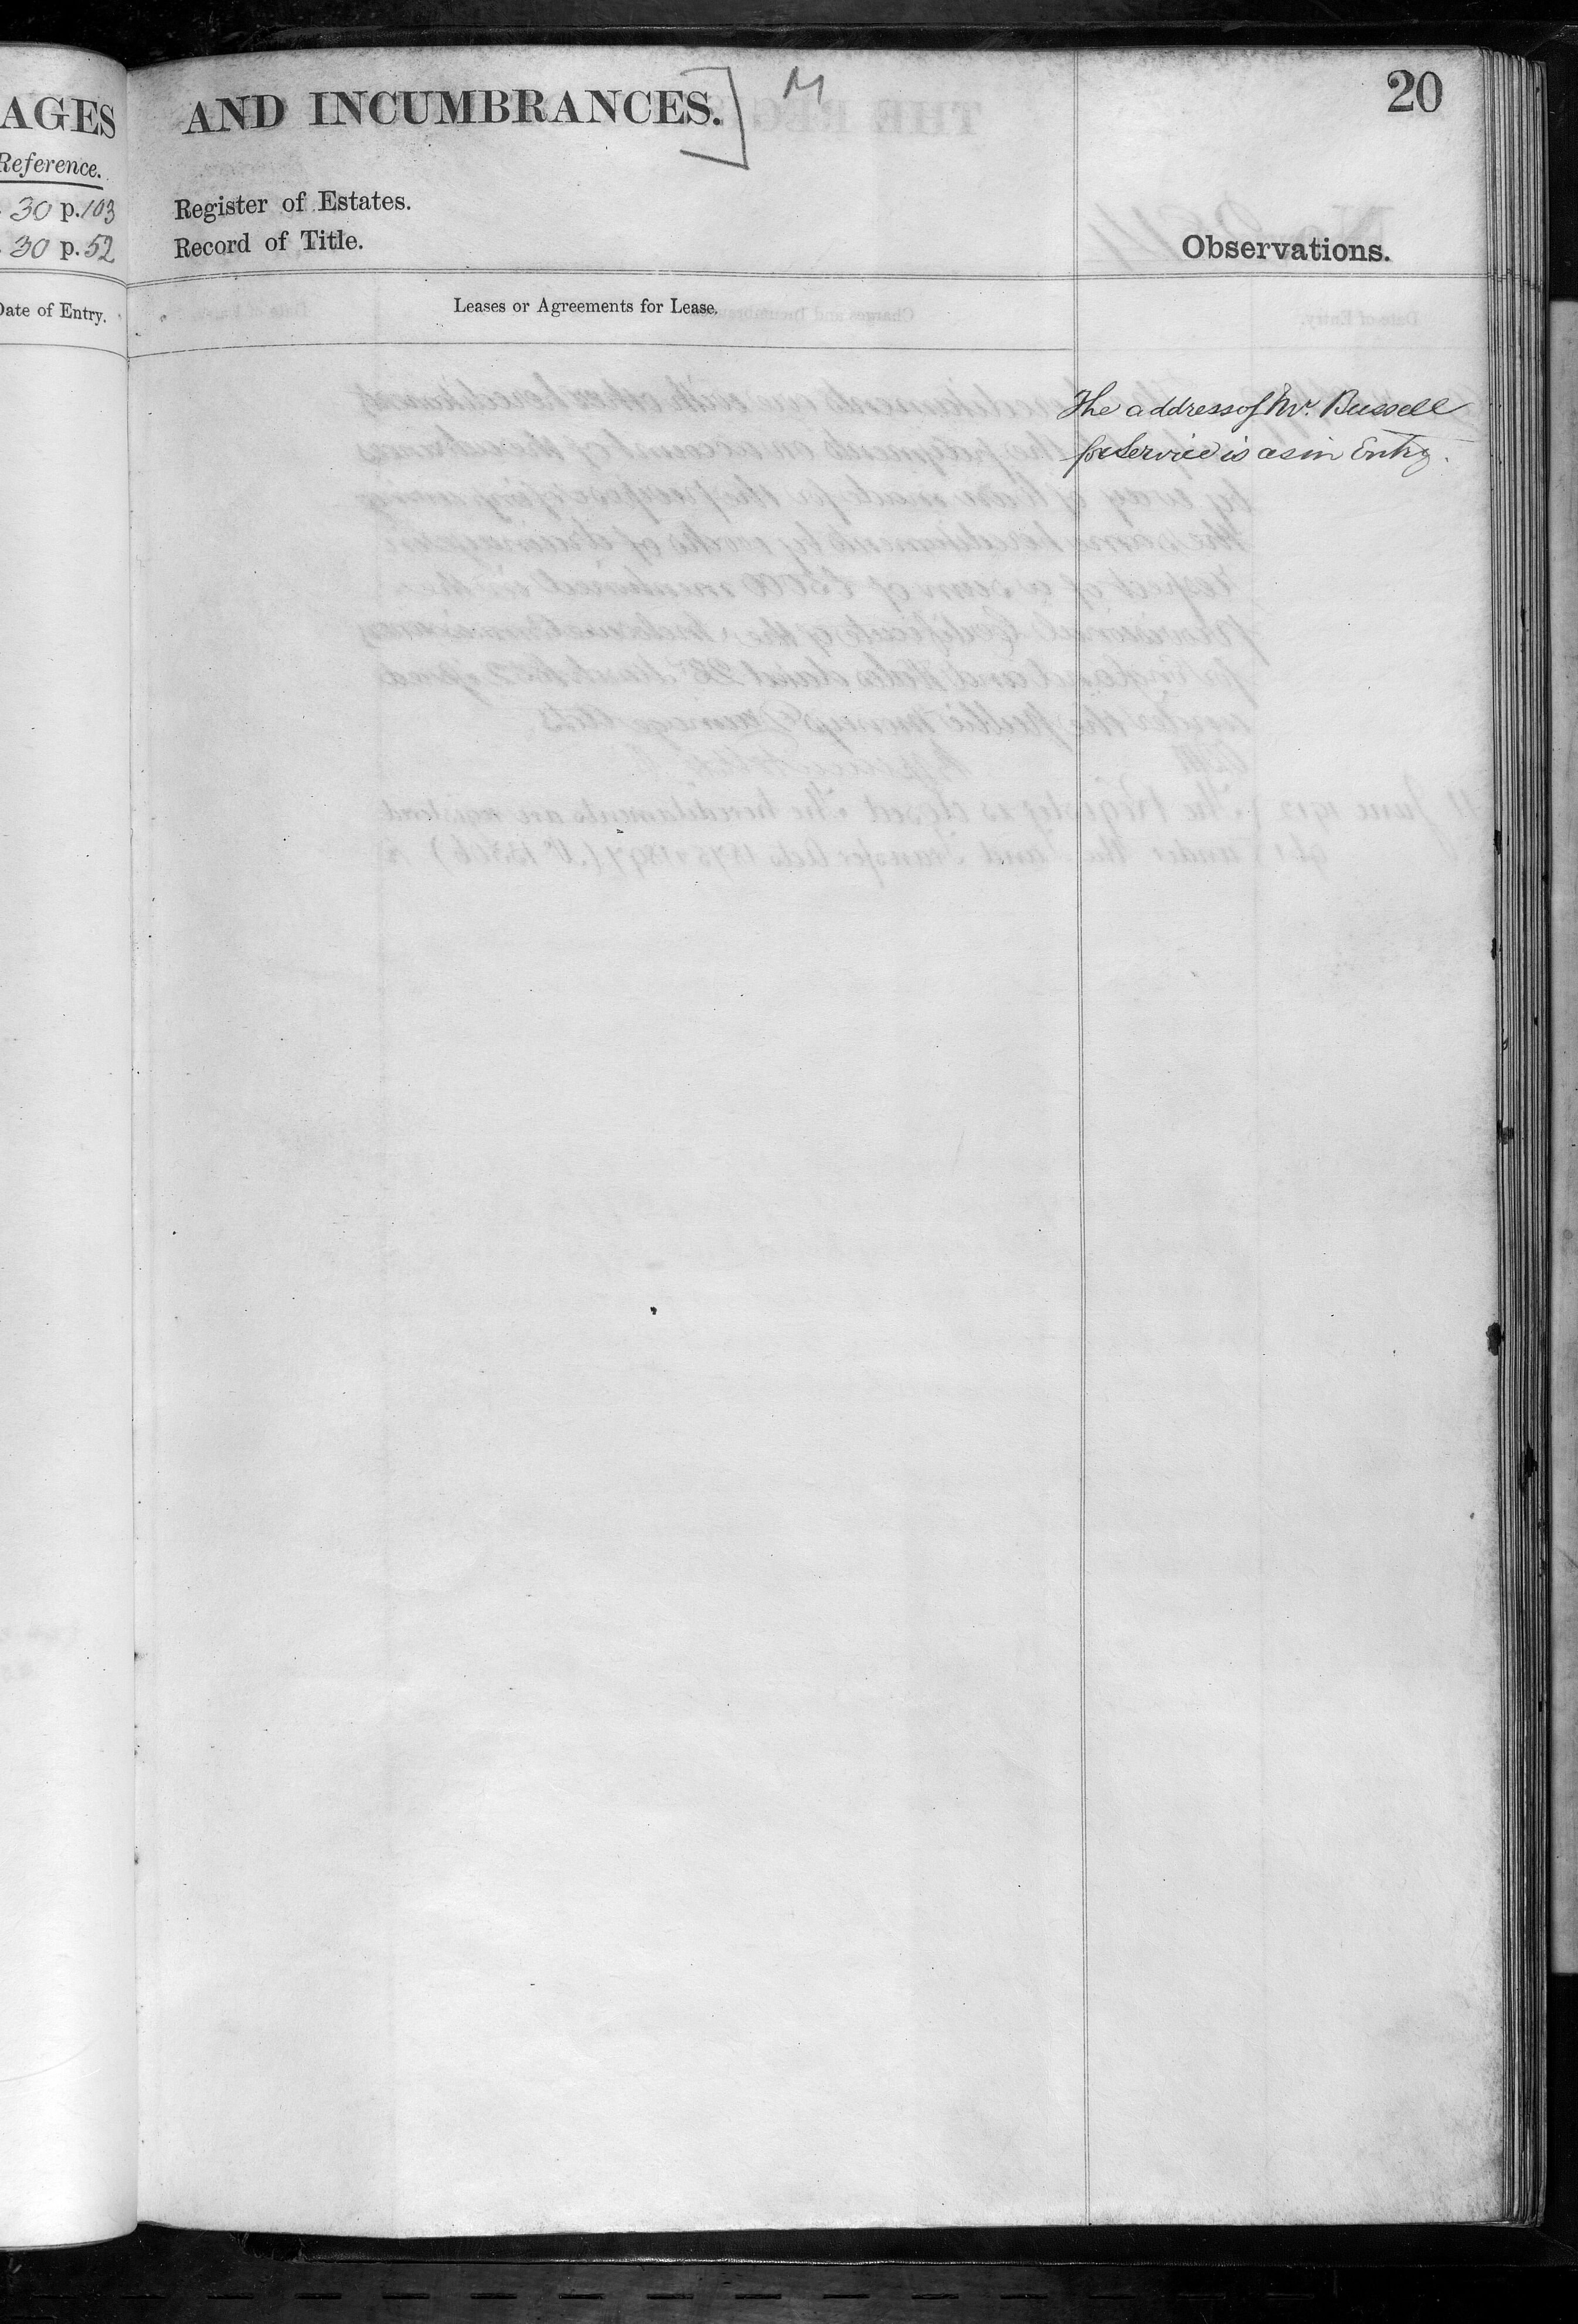 AGES
Reference.
30 p. 103
30 p. 52
Date of Entry.
AND INCUMBRANCES.] M
20
Register of Estates.
Record of Title.
Observations.
Leases or Agreements for Lease.
The address of Mr. Bussell
for Service is as in Entry.